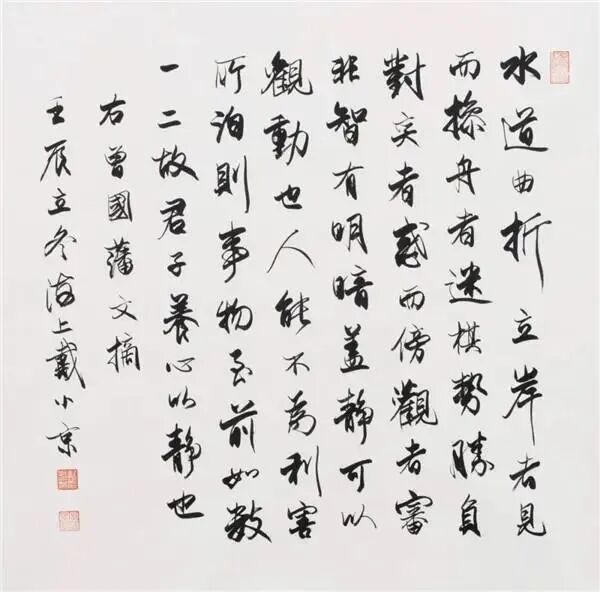 水道曲折立岸者見
而操舟者迷棋勢勝負
對奕者惑而傍觀者審
非智有明暗蓋靜可以
觀動也人能不為利害
所泊則事物至前如數
一二故君子養心以靜也
右曾國藩文摘
壬辰立冬海上戴小京